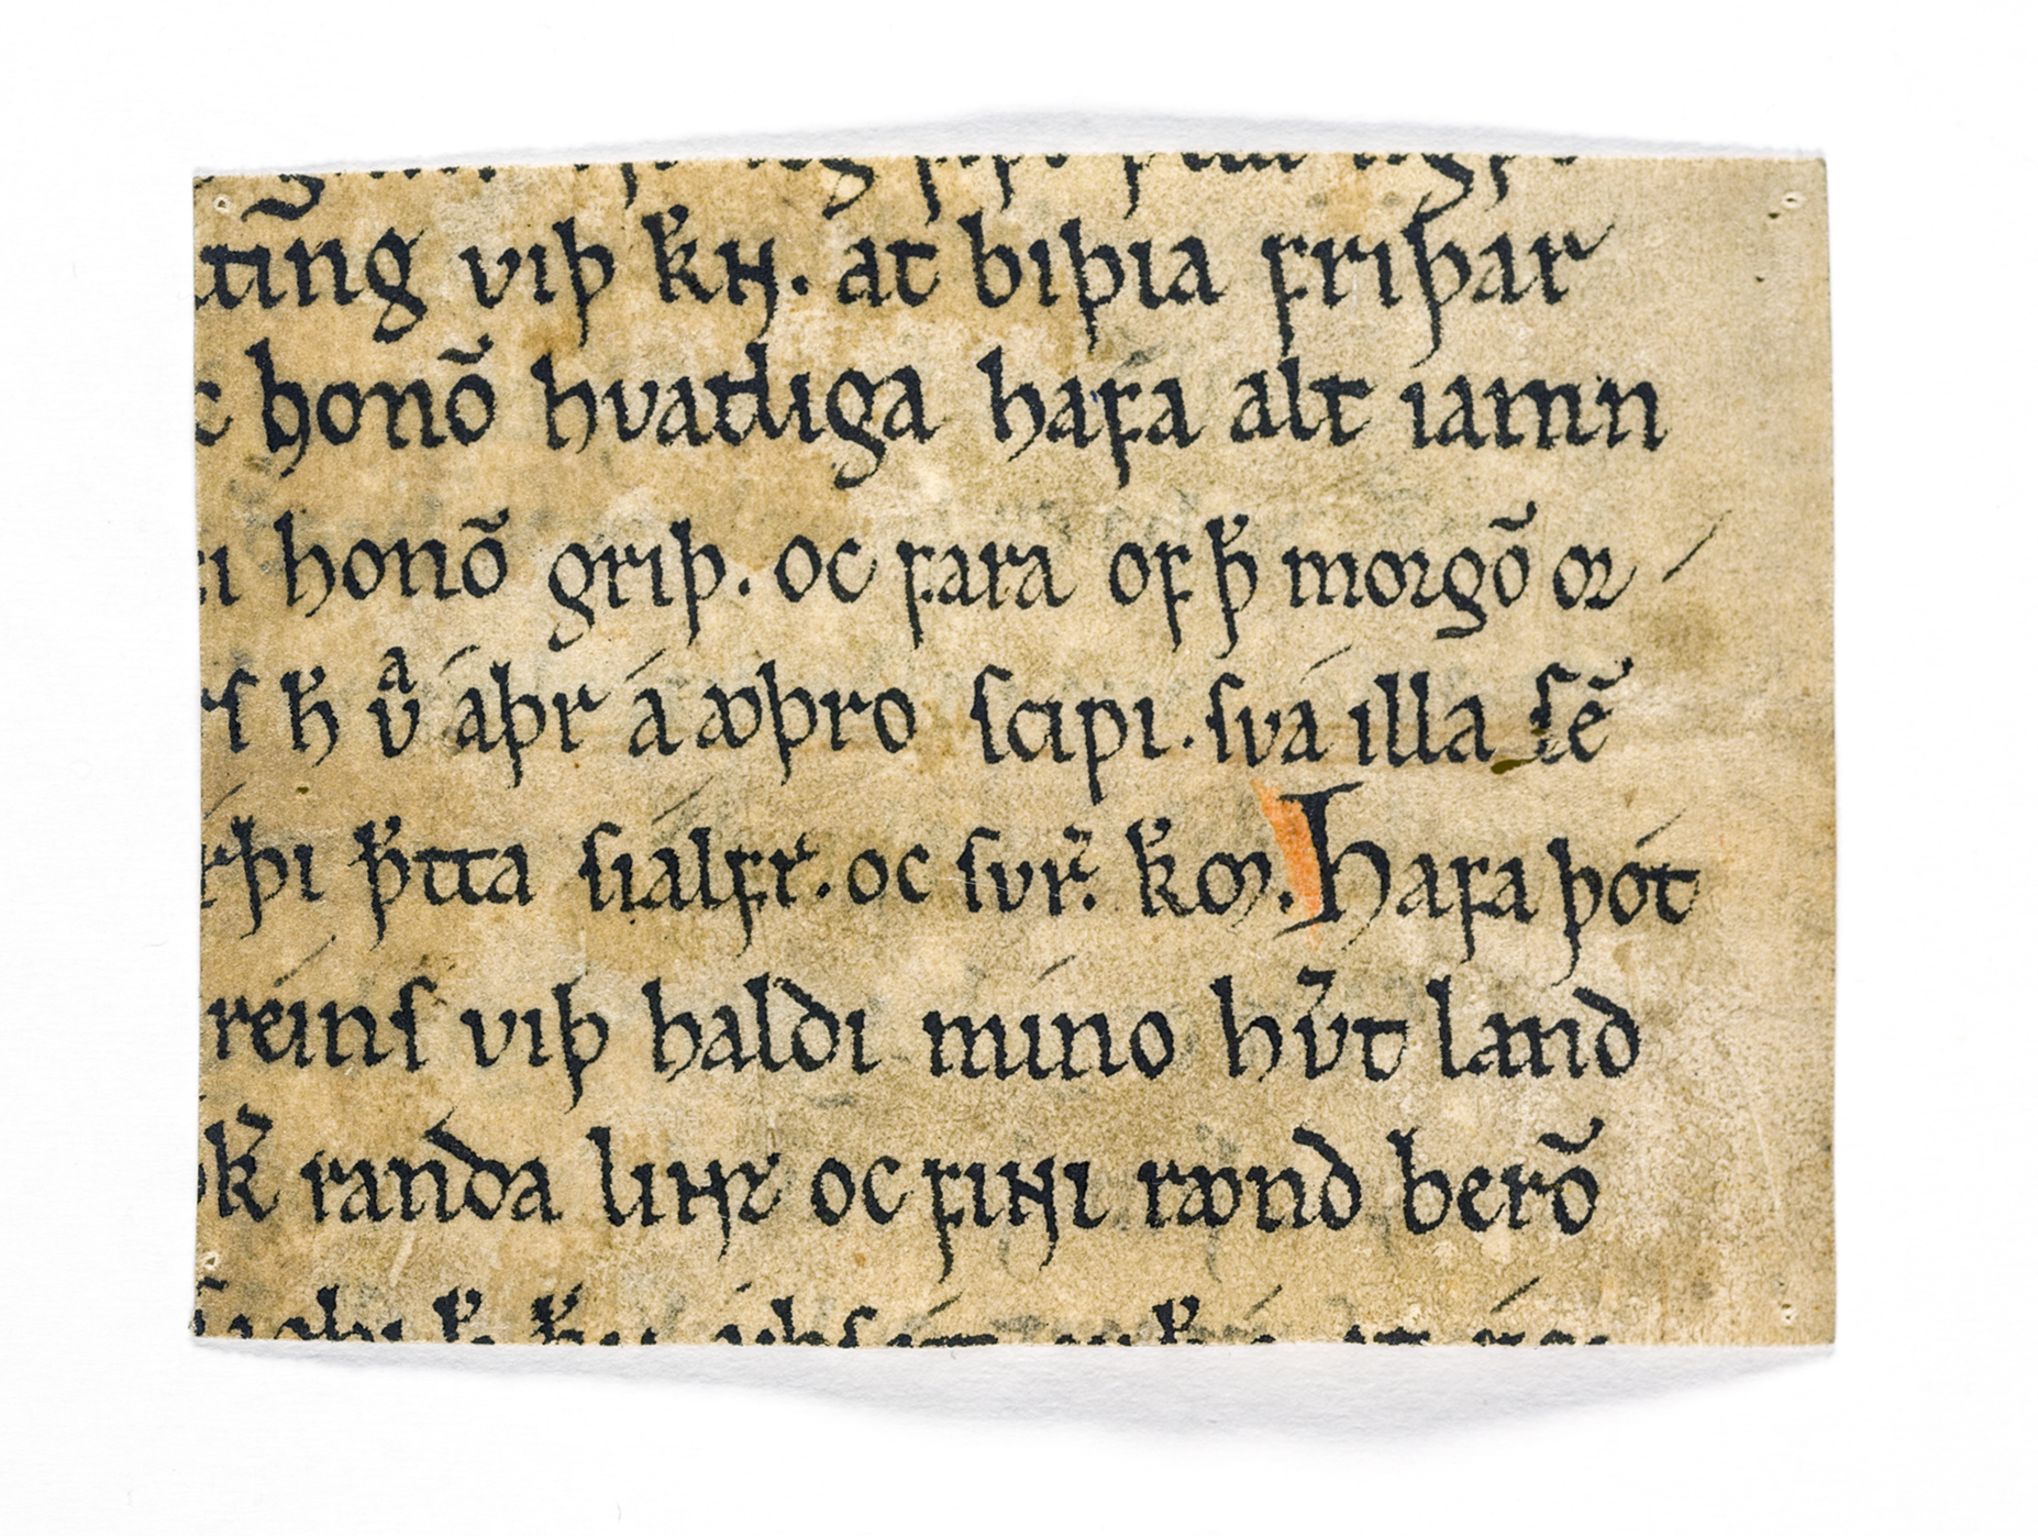 tĩng viþ k̓ꜧ. at biþia friþar
honõ hvatliga hafa alt iamn
honõ griþ. oc fara of þ̓ moꝛgõ oꝛ
h̓ vͣ áþr á ꜵþro ſcipi. ſvá illa ſẽ
þ̓tta ſiálfr. oc ſvr̃. k̓oɴ. Hafa þót
reínſ viþ haldi míno hv̓t land
k̃ randa liɴr oc fiɴi rꜵnd berõ